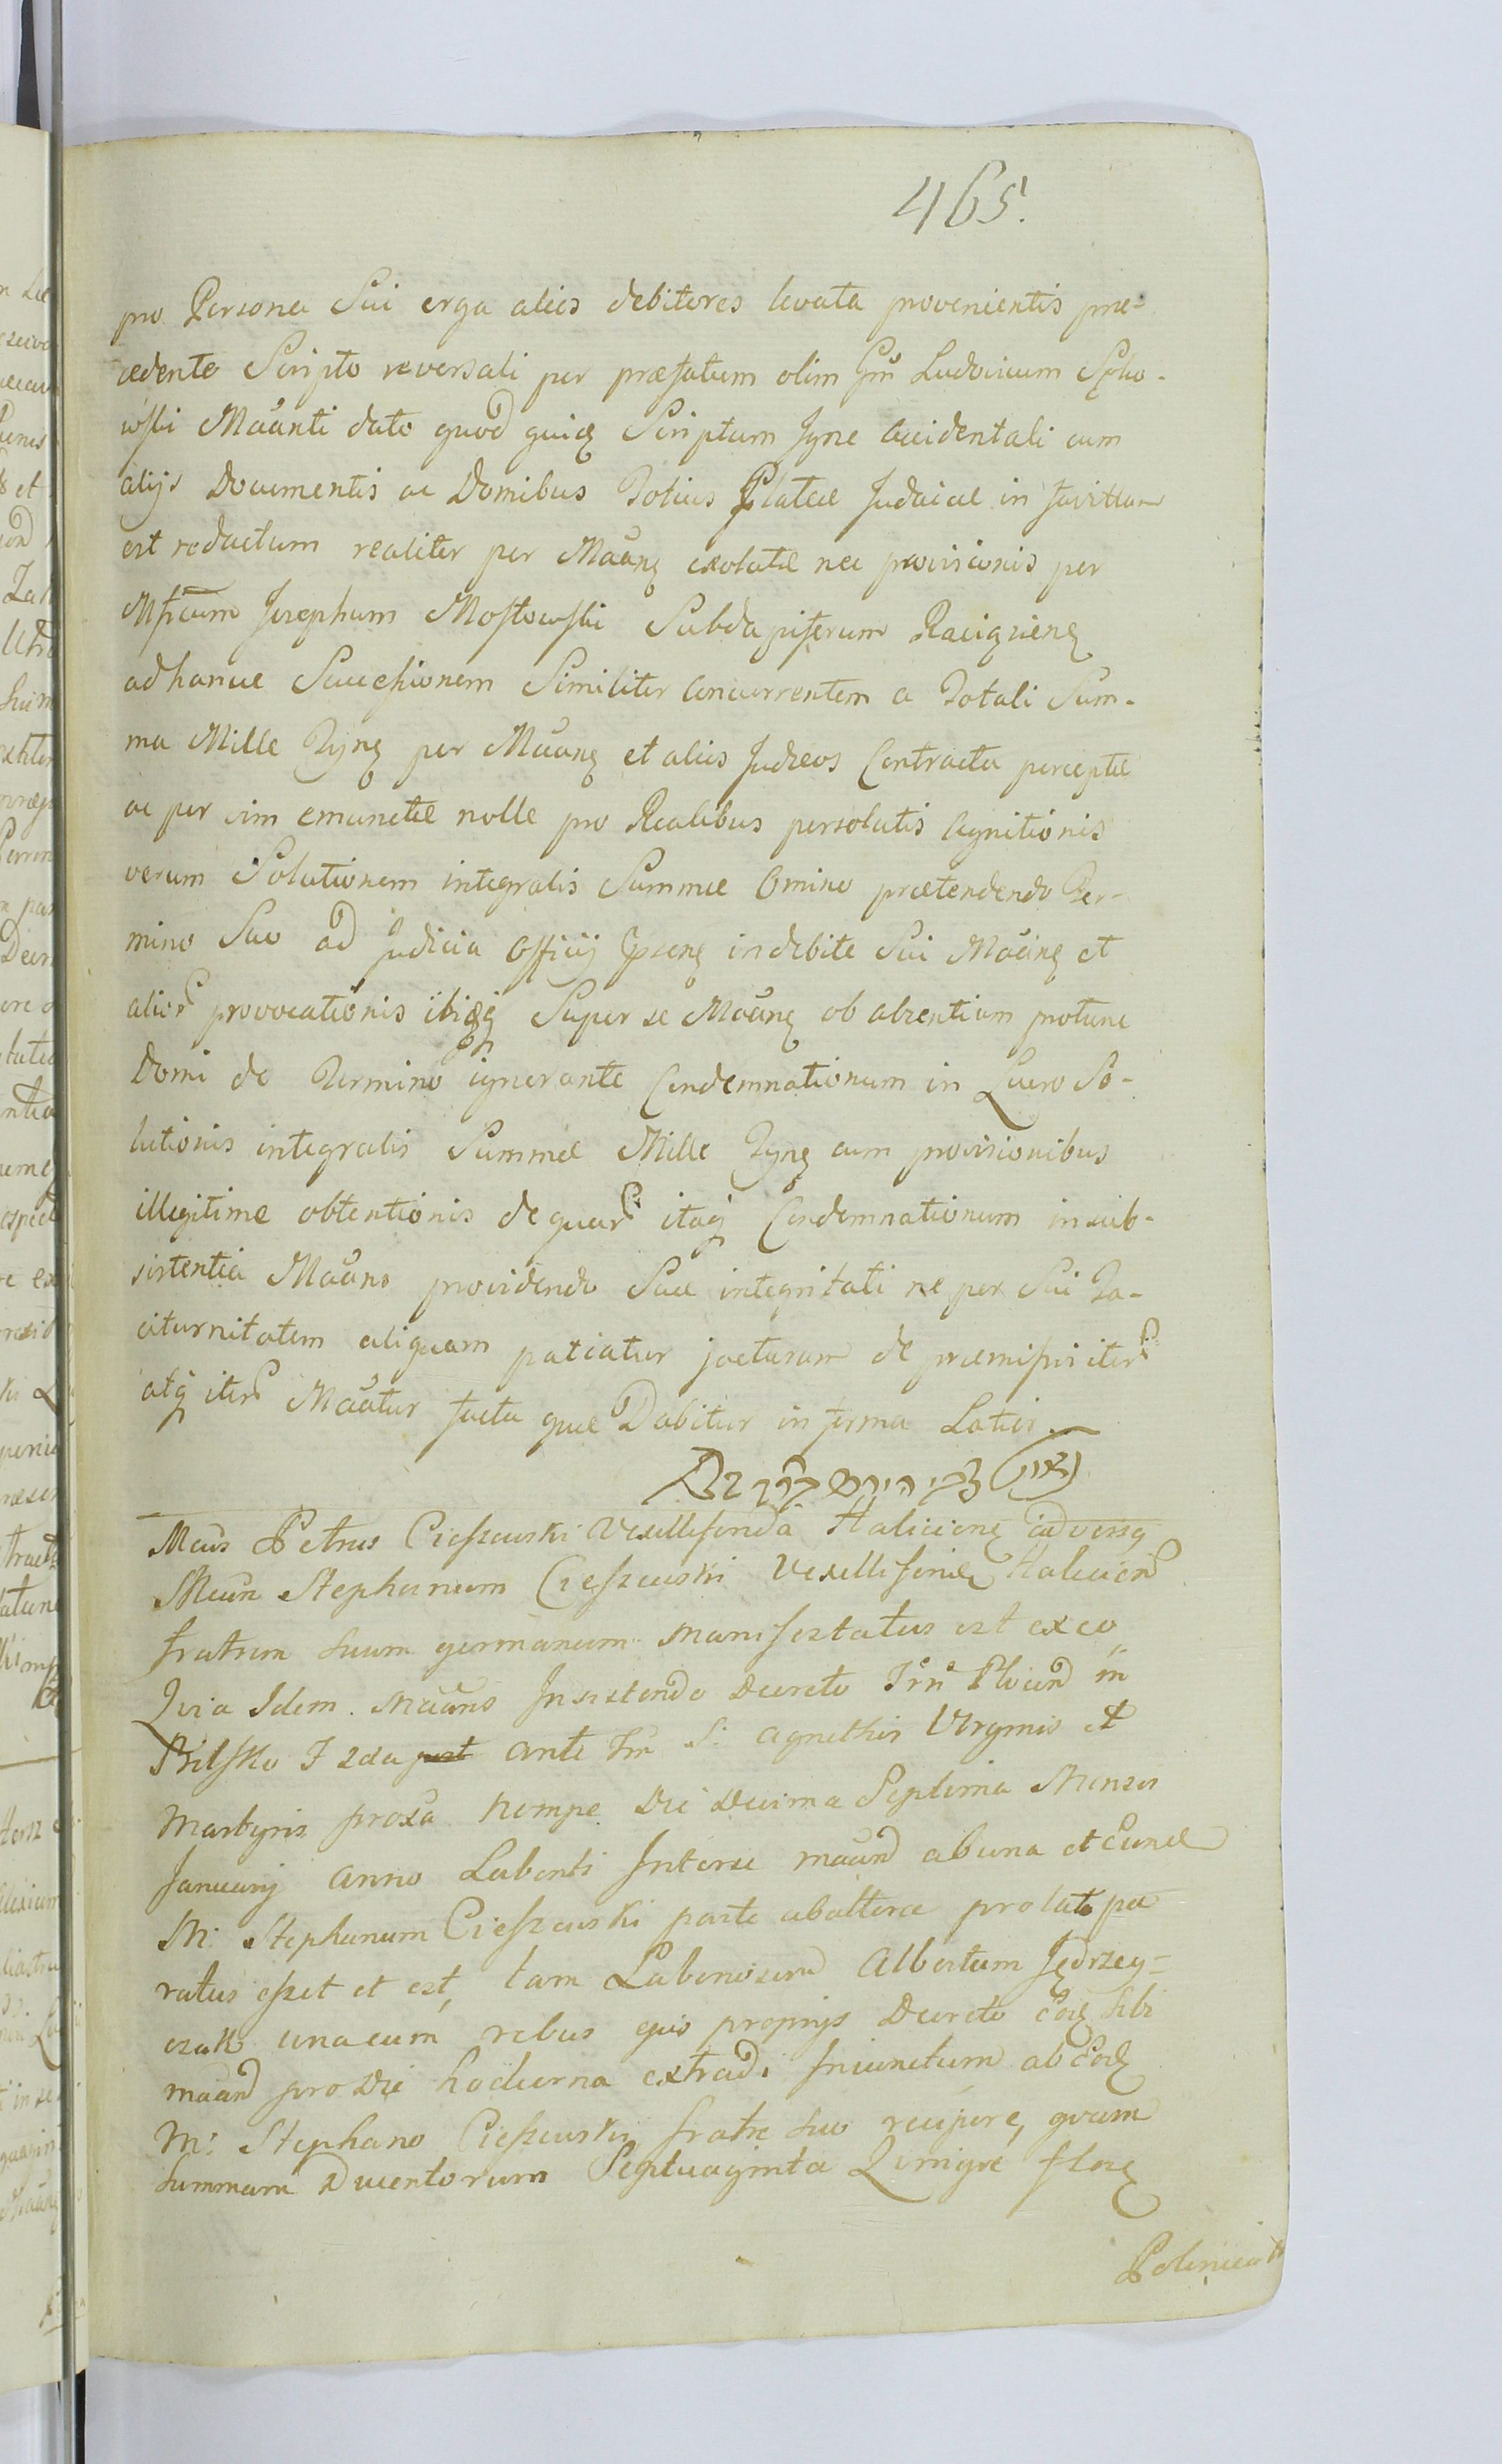 465.
pro Persona Sui erga alios debitores levata provenientis prae-
cedente Scripto reversali per praefatum olim Ludovicum
Mãnti dato quod quidẽ Scriptum Igne accidentali cum
alijs Documentis ac Domibus Totius Plateae Judaicae in favillam
est redactum realiter per Mãnẽ exolutae nec provisionis per
Mficum Josephum Mostowski Subdapiferum Raciąziensẽ
ad hancce Successionem Similiter concurrentem a Totali Sum-
ma Mille Tynfẽ per Mãnẽ et alios Judaeos Contracta perceptae
ac per vim emunctae nolle pro Realibus persolutis agnitionis
verum Solutionem integralis Summae Omino praetendendo Ter-
mino Suo ad Judicia Officij indebite Sui Mãnẽ et
alior̃ provocationis ibiqq Super se Mãnẽ ob absentiam protunc
Domi de Termino ignorante Condemnationum in Lucro So-
lutionis integralis Summae Mille Tynfẽ cum provisionibus
illegitime obtentionis de quar̃ itaq Condemnationum insub-
sistentia Mãns providendo Suae integritati ne per Sui Ta-
citurnitatem aliquam patiatur jacturam de praemissis iter̃
atq iter̃ Mãtur facta quae Dabitur in forma Latior.
Mcus Petrus Cieszewski Vexilliferida Haliciens adversq
Mcum Stephanum Cieszewski Vexilliferidẽ Halicien
fratrem suum germanum manifestatus est ex eo
Qvia Idem Mãns Insistendo Decreto Plocen̄ in
Bielsko F 2da post ante fm S: Agnethis Virginis et
Martyris proxa nempe Die Decima Septima Mensis
Januarij anno Labenti Interse mãn ab una et eund
M: Stephanum Cieszewski parte ab altera prolato pa
ratus esset et est, tam Laboriosum Albertum Jędrzey-
czak unacum rebus ejus proprijs Decreto eod sibi
mãn pro Die hodierna extradi Iniunctum ab eod
M: Stephano Cieszewski fratre suo recipere, qvam
summam Ducentorum Septuaginta Qvinqve flor